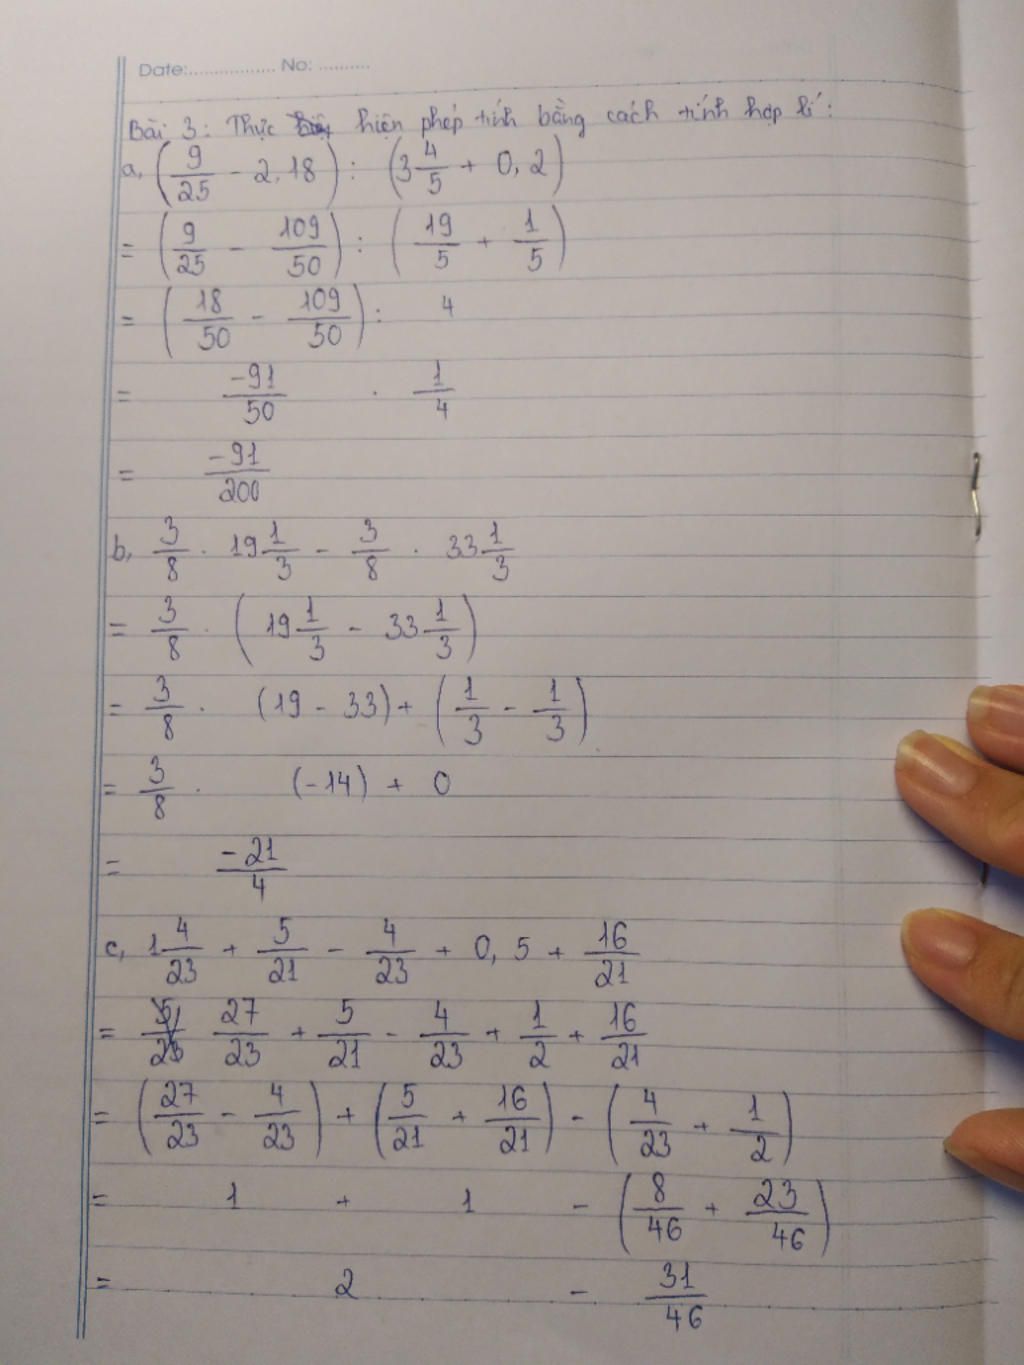 Date:................. No: ..........
Bài 3: Thực hiện phép tính bằng cách tính hợp lí:
a, (9/25 - 2,18) : (3 4/5 + 0,2)
= (9/25 - 109/50) : (19/5 + 1/5)
= (18/50 - 109/50) : 4
= -91/50 . 1/4
= -91/200
b, 3/8 . 19 1/3 - 3/8 . 33 1/3
= 3/8 . (19 1/3 - 33 1/3)
= 3/8 . (19 - 33) + (1/3 - 1/3)
= 3/8 . (-14) + 0
= -21/4
c, 1 4/23 + 5/21 - 4/23 + 0,5 + 16/21
= 27/23 + 5/21 - 4/23 + 1/2 + 16/21
= (27/23 - 4/23) + (5/21 + 16/21) - (4/23 + 1/2)
= 1 + 1 - (8/46 + 23/46)
= 2 - 31/46